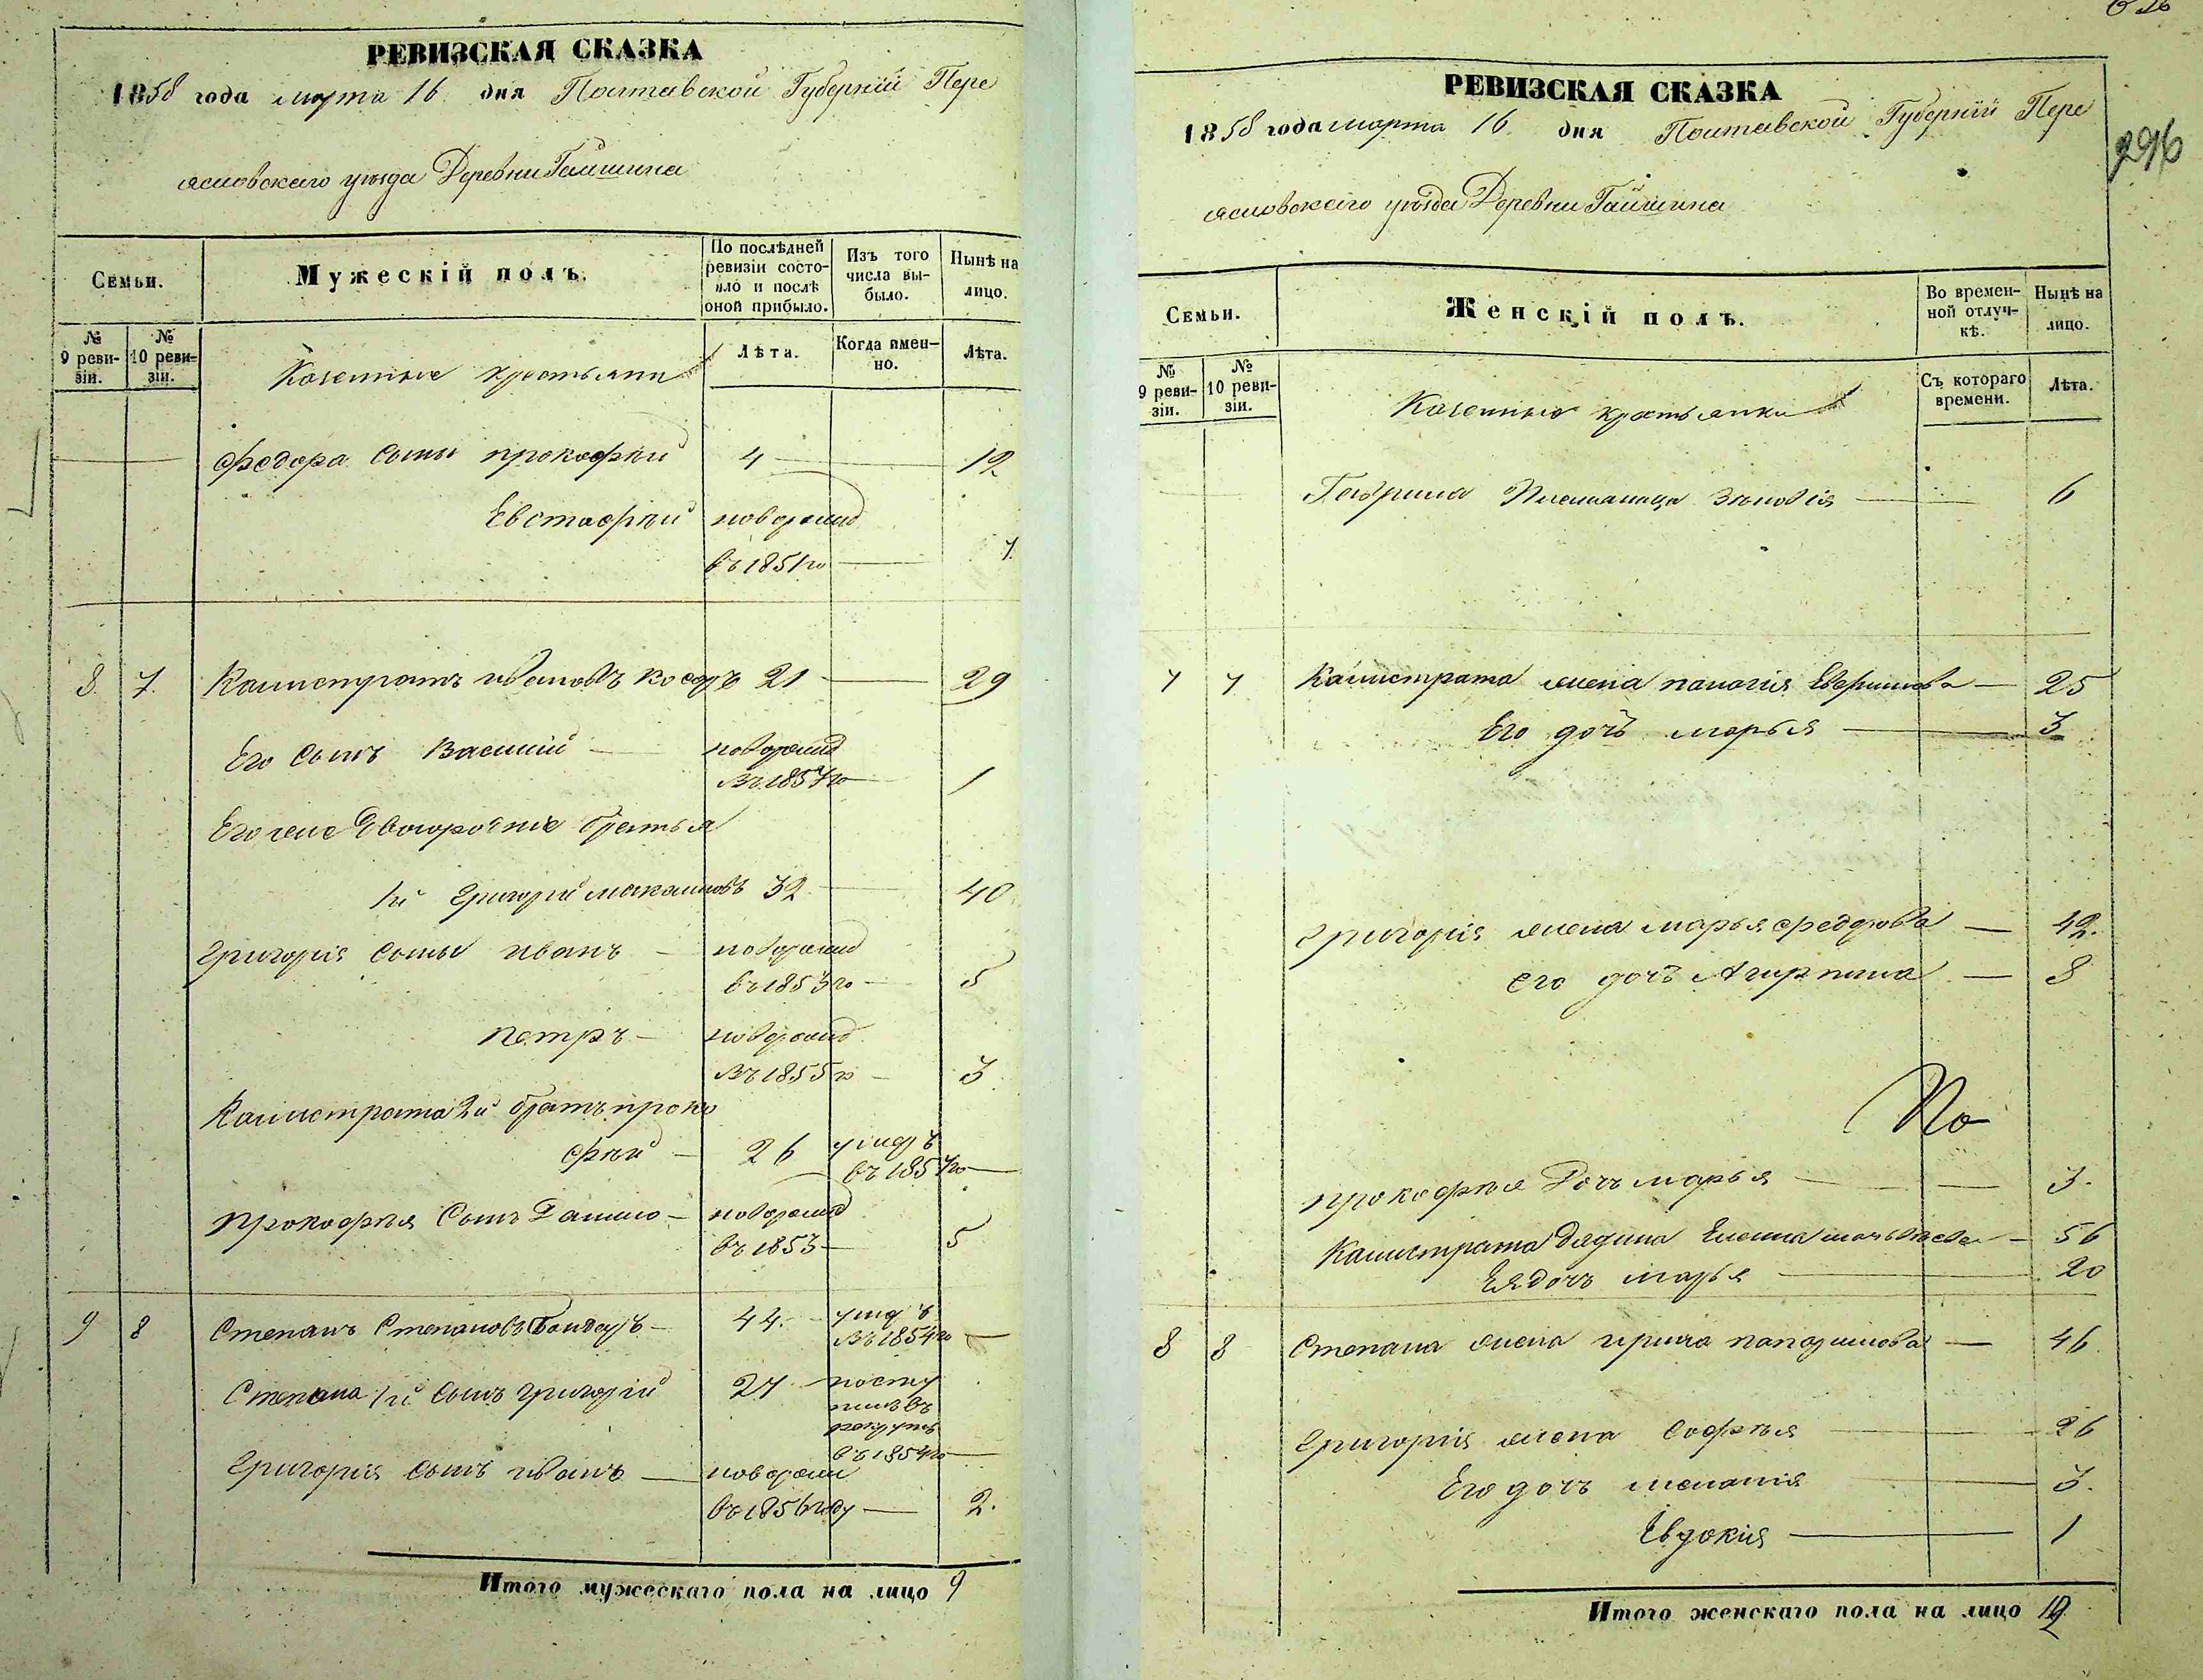 РЕВИЗСКАЯ СКАЗКА
1858 года марта 16 дня Полтавской Губерніи Пере
яславскаго уѣзда Деревни Гайшина
Семьи.
Мужескій полъ.
По послѣдней ревизіи состояло и послѣ оной прибыло.
Изъ того числа выбыло.
Нынѣ на лицо.
№ 9 ревизіи.
№ 10 ревизіи.
Казенные крестьяни
Лѣта.
Когда именно.
Лѣта.
Федора сыны прокофѣй 4 12
Евстафѣй новорожд
въ 1851 го 7.
8. 7. Калистратъ ивановъ 21 29
Его сынъ Василій новорожд
въ 1857 го 1
Его же Двоюродніе братья
1й Григорій 32 40
Григорія сыны иванъ новорожд
въ 1853 го 5
петръ новорожд
въ 1855 го 3
Калистрата 2й братъ проко
фѣй 26 умеръ
въ 1857 го
прокофѣя Сынъ Данило новорожд
въ 1853 5
9 8 Степанъ Степановъ Бондарь 44. умеръ
въ 1854 го
Степана 1й сынъ григорій 27 посту
пилъ въ
рекруты
въ 1854 го
Григорія сынъ иванъ новорожд
въ 1856 году 2.
Итого мужескаго пола на лицо 9
РЕВИЗСКАЯ СКАЗКА
1858 года марта 16 дня Полтавской Губерніи Пере
яславскаго уѣзда Деревни Гайшина
296
Семьи.
Женскій полъ.
Во временной отлучкѣ.
Нынѣ на лицо.
№ 9 ревизіи.
№ 10 ревизіи.
Казенные крестьянки
Съ котораго времени.
Лѣта.
Гаврила Племяница Зѣновія 6
7 7 Калистрата жена пелагія 25
Его дочь марья 3
Григорія жена марья федорова 42.
его дочь Агирпина 8
По
прокофѣя Дочь марья 3.
Калистрата Дядина 56
Ея дочь марья 20
8 8 Степана жена ирина 46
Григорія жена Софѣя 26
Его дочь меланія 3.
Евдокія 1
Итого женскаго пола на лицо 12